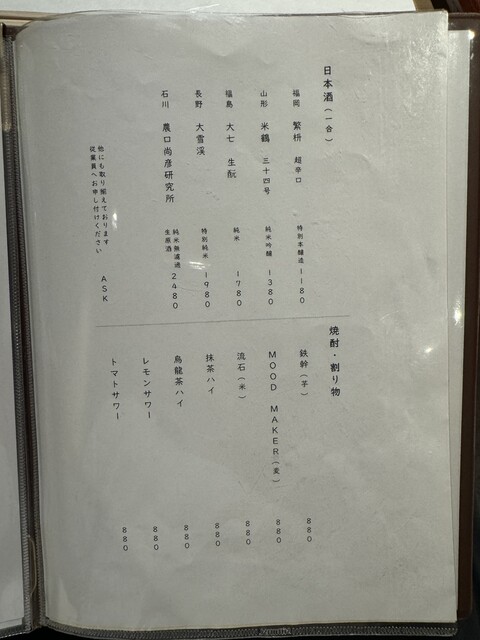 日本酒（一合）
福岡 繁桝 超辛口 特別本醸造 1180
山形 米鶴 三十四号 純米吟醸 1380
福島 大七 生酛 純米 1780
長野 大雪渓 特別純米 1980
石川 農口尚彦研究所 純米無濾過生原酒 2480
他にも取り揃えております
従業員へお申し付けください ASK
焼酎・割り物
鉄幹（芋） 880
MOOD MAKER（麦） 880
流石（米） 880
抹茶ハイ 880
烏龍茶ハイ 880
レモンサワー 880
トマトサワー 880